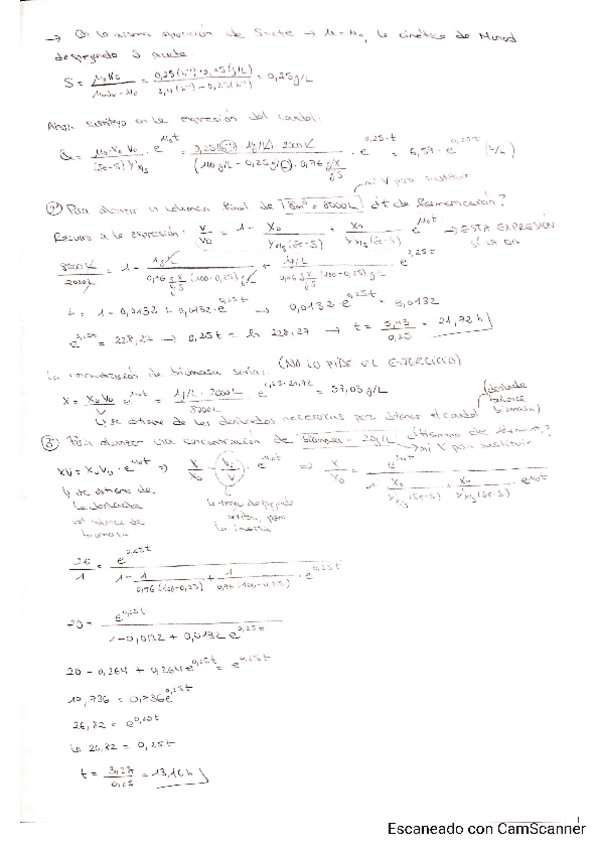 → En la misma aparición de → μ = μ₀, la cinética de Monod
despejando S queda:
S = μ₀·Ks / μmáx − μ₀ = 0,25 (h⁻¹) · (g/L) / (h⁻¹) − 0,25 (h⁻¹) = 0,25 g/L
Ahora sustituyo en la expresión del caudal:
Q = μ₀·X₀·V₀ / (Se−S)·Y'x/s · e^μ₀t = 0,25 (h⁻¹) · 1 g/L · 2000 L / (100 g/L − 0,25 g/L) · 0,76 gX/gS · e^0,25·t = 6,59 · e^0,25t (L/h)
mi V para sustituir
② Para alcanzar un volumen final de 8 m³ = 8000 L ¿t de fermentación?
Recurro a la expresión: V/V₀ = 1 − X₀ / Yx/s (Se−S) + X₀ / Yx/s (Se−S) e^μ₀t → ESTA EXPRESIÓN
SÍ LA DA
8000 L / 2000 L = 1 − 1 g/L / 0,76 gX/gS (100−0,25) g/L + 1 g/L / 0,76 gX/gS (100−0,25) g/L e^0,25t
4 = 1 − 0,0132 + 0,0132 · e^0,25t → 0,0132 · e^0,25t = 3,0132
e^0,25t = 228,27 → 0,25t = ln 228,27 → t = 5,43 / 0,25 = 21,72 h
La concentración de biomasa sería: (NO LO PIDE EL EJERCICIO)
X = X₀V₀ / V e^μ₀t = 1 g/L · 2000 L / 8000 L e^0,25·21,72 = 57,03 g/L
se obtiene de las derivadas necesarias para obtener el caudal (derivada
balance
biomasa)
③ Para alcanzar una concentración de biomasa = 20 g/L ¿tiempo de ferment.?
mi V para sustituir
XV = X₀V₀ · e^μ₀t ⇒ X/X₀ = V₀/V · e^μ₀t ⇒ X/X₀ = e^μ₀t / 1 − X₀ / Yx/s (Se−S) + X₀ / Yx/s (Se−S) · e^μ₀t
se obtiene de
la derivada
balance de
biomasa
la tengo despejada
arriba, pero
la inversa
20 / 1 = e^0,25t / 1 − 1 / 0,76 (100−0,25) + 1 / 0,76 (100−0,25) · e^0,25t
20 = e^0,25t / 1 − 0,0132 + 0,0132 e^0,25t
20 − 0,264 + 0,264 e^0,25t = e^0,25t
19,736 = 0,736 e^0,25t
26,82 = e^0,25t
ln 26,82 = 0,25t
t = 3,29 / 0,25 = 13,16 h
1
Escaneado con CamScanner